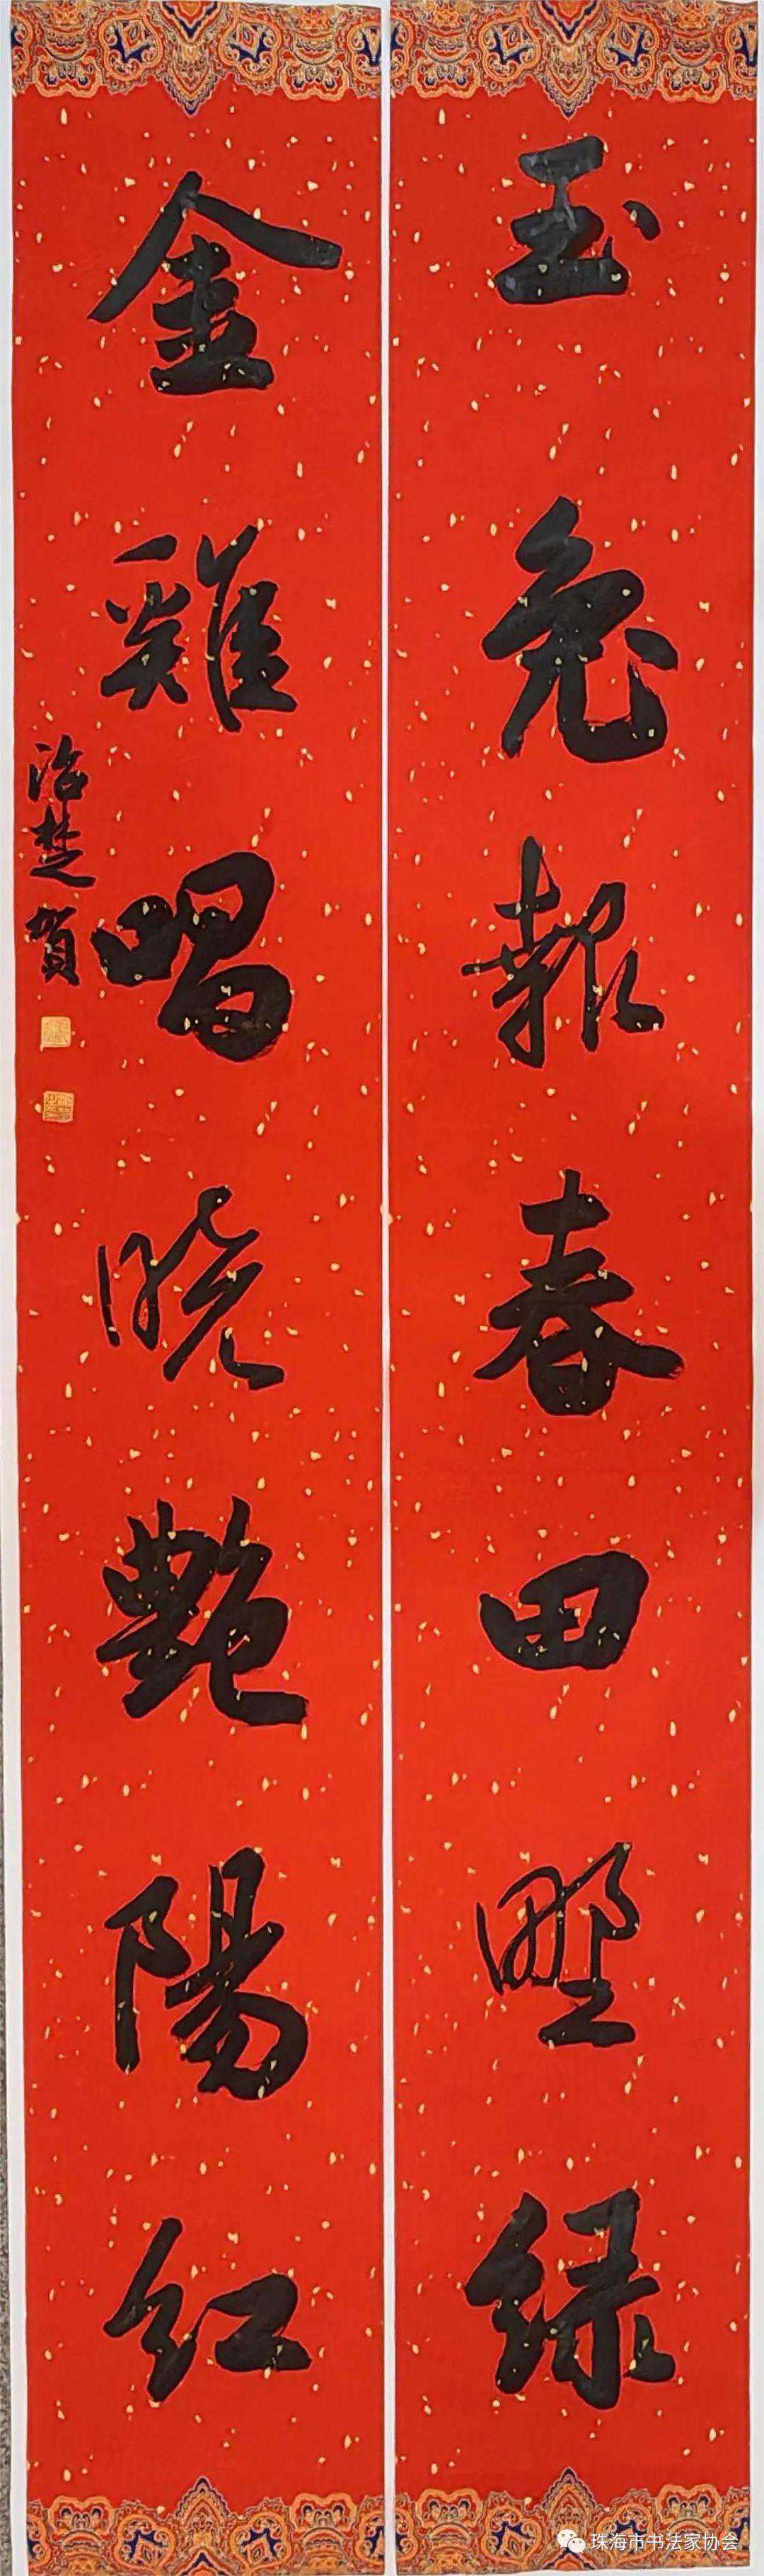 玉兔報春田野绿
金雞唱晓艷陽红
治楚賀
珠海市书法家协会